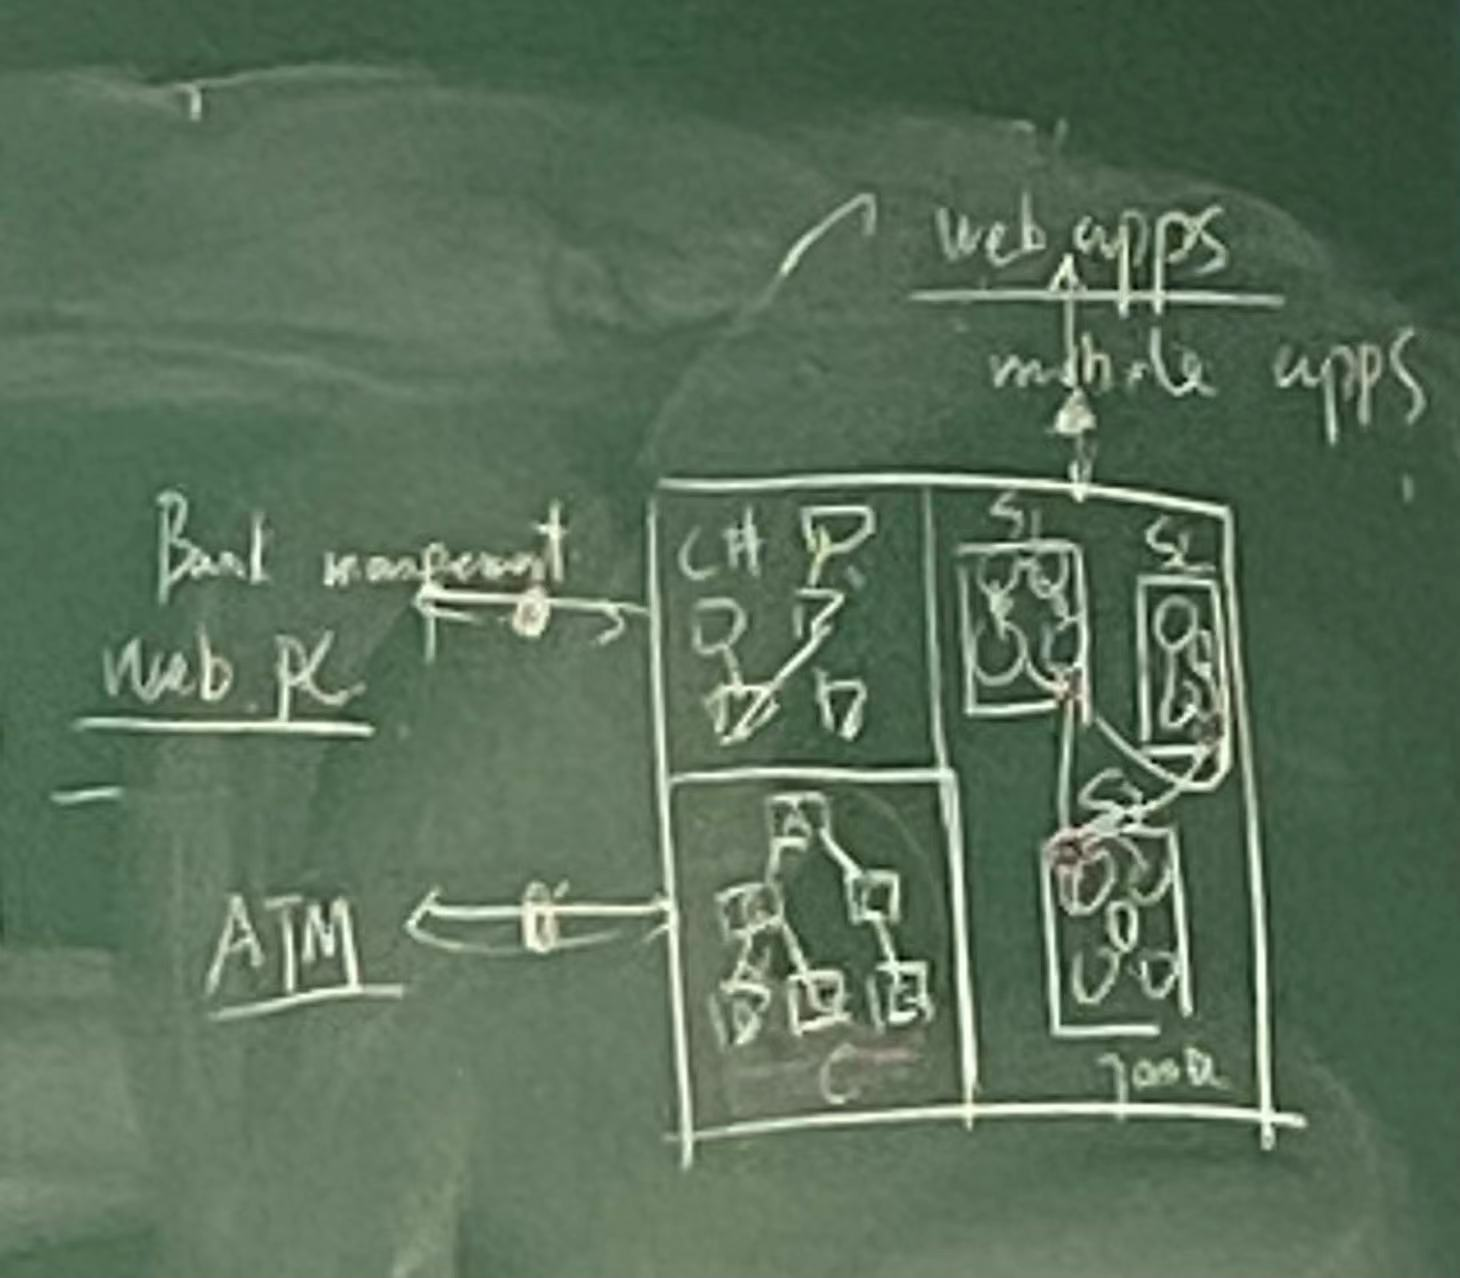 web apps
mobile apps
Bank management
Web PC
ATM
CH
S1
S2
A
C